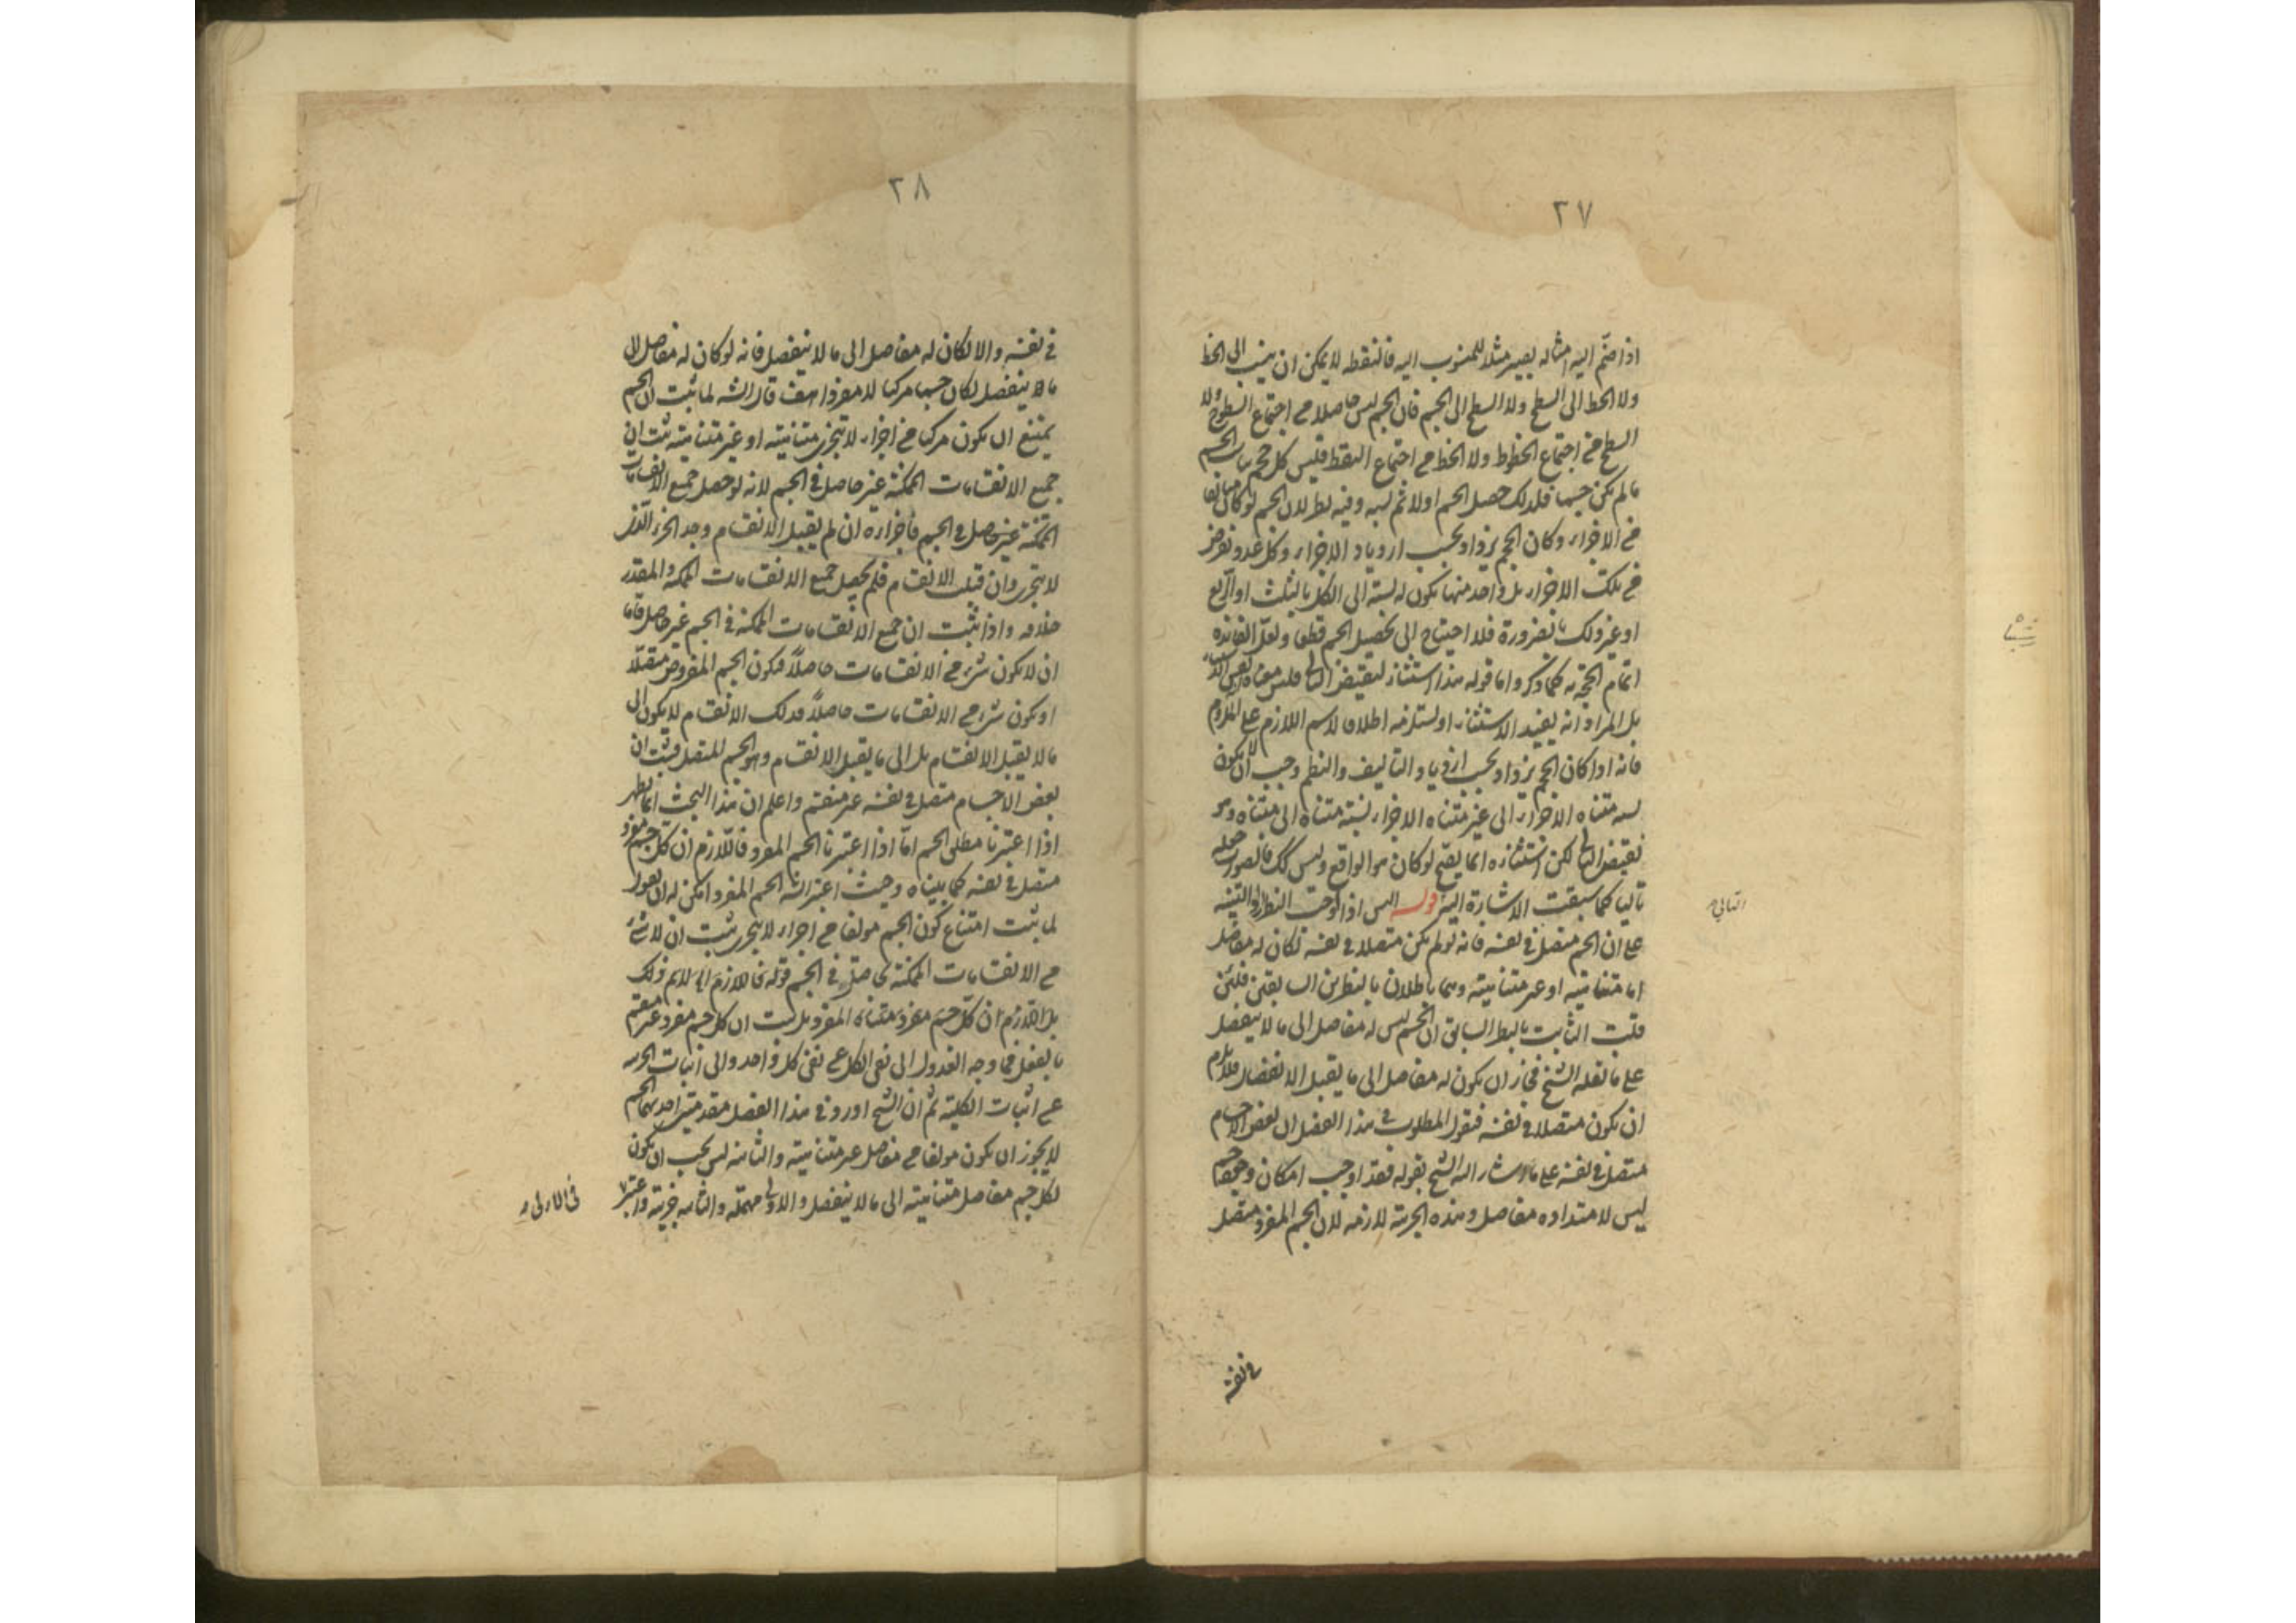 ٢٧
اذا ضمّ اليه امثاله يصير مثلا للمنسوب اليه فالنقطة لا يمكن ان ينسب الى الخط
ولا الخط الى السطح ولا السطح الى الجسم فان الجسم ليس حاصلا من اجتماع السطوح ولا
السطح من اجتماع الخطوط ولا الخط من اجتماع النقط فليس كل حجم الجسم
ما لم يكن جسما فلذلك حصل الجسم اولا ثم نسبه وفيه نظر لان الجسم لو كان
من الاجزاء وكان الحجم يزداد بحسب ازدياد الاجزاء وكل عدد تفرض
من تلك الاجزاء بل واحد منها يكون له نسبة الى الكل بالثلث او الربع
او غير ذلك بالضرورة فلا احتياج الى تحصيل الجسم قطعا ولعل الفائدة
اتمام الحجة به كما ذكر واما قوله هذا استثناء لنقيض التالى فليس معناه
بل المراد انه يفيد الاستثناء او يستلزمه اطلاقا لاسم اللازم على الملزوم
فانه اذا كان الحجم يزداد بحسب ازدياد التاليف والنظم وجب ان لا يكون
نسبة متناه الاجزاء الى غير متناه الاجزاء نسبة متناه الى متناه وهو
نقيض التالى لكن استثناؤه انما يصح لو كان هو الواقع وليس كك فالصواب جعله
تاليا كما سبقت الاشارة اليه قوله اليس اذا اوجب النظر
على ان الجسم متصل فى نفسه فانه لو لم يكن متصلا فى نفسه لكان له مفاصل
اما متناهية او غير متناهية وهما باطلان بالنظرين السابقين فلئن
قلت الثابت بالنظر السابق ان الجسم ليس له مفاصل الى ما لا ينفصل
على ما نقله الشيخ فجاز ان يكون له مفاصل الى ما يقبل الانفصال فلا يلزم
ان يكون متصلا فى نفسه فنقول المطلوب فى هذا الفصل ان بعض الاجسام
متصل فى نفسه على ما اشار اليه الشيخ بقوله فقد اوجب امكان وجود جسم
ليس لامتداده مفاصل وهذه الجزئية لازمة لان الجسم المفرد متصل
فى نفسه
التالى
٢٨
فى نفسه والا لكان له مفاصل الى ما لا ينفصل فانه لو كان له مفاصل الى
ما لا ينفصل لكان جسما مركبا لا مفردا هف قال الش لما ثبت ان الجسم
يمتنع ان يكون مركبا من اجزاء لا تتجزى متناهية او غير متناهية ثبت ان
جميع الانقسامات الممكنة غير حاصل فى الجسم لانه لو حصل جميع الانقسامات
الممكنة غير حاصل فى الجسم فاجزاؤه ان لم يقبل الانقسام وجد الجزء الذى
لا يتجزى وان قبلت الانقسام فلم يحصل جميع الانقسامات الممكنة والمقدر
خلافه واذا ثبت ان جميع الانقسامات الممكنة فى الجسم غير حاصل فاما
ان لا يكون شىء من الانقسامات حاصلا فيكون الجسم المفروض متصلا
او يكون شىء من الانقسامات حاصلا فذلك الانقسام لا يكون الى
ما لا يقبل الانقسام بل الى ما يقبل الانقسام وهو الجسم المتصل فثبت ان
بعض الاجسام متصل فى نفسه غير منقسم واعلم ان هذا البحث انما يظهر
اذا اعتبرنا مطلق الجسم اما اذا اعتبرنا الجسم المفرد فاللازم ان كل جسم مفرد
متصل فى نفسه كما بيناه وحيث اعتبر الش الجسم المفرد امكن له ان يقول
لما ثبت امتناع كون الجسم مولفا من اجزاء لا يتجزى ثبت ان لا شىء
من الانقسامات الممكنة بحاصل فى الجسم قوله فاللازم لا يم ذلك
بل اللازم ان كل جسم مفرد متناه المفرد بل ثبت ان كل جسم مفرد غير منقسم
بالفعل فما وجه العدول الى نفى الكل عن نفى كل واحد والى اثبات الجزئية
عن اثبات الكلية ثم ان الشيخ اورد فى هذا الفصل مقدمتين احديهما الجسم
لا يجوز ان يكون مولفا من مفاصل غير متناهية والثانية ليس يجب ان يكون
لكل جسم مفاصل متناهية الى ما لا ينفصل والاولى مهملة والثانية جزئية واعتبر
فى الاولى